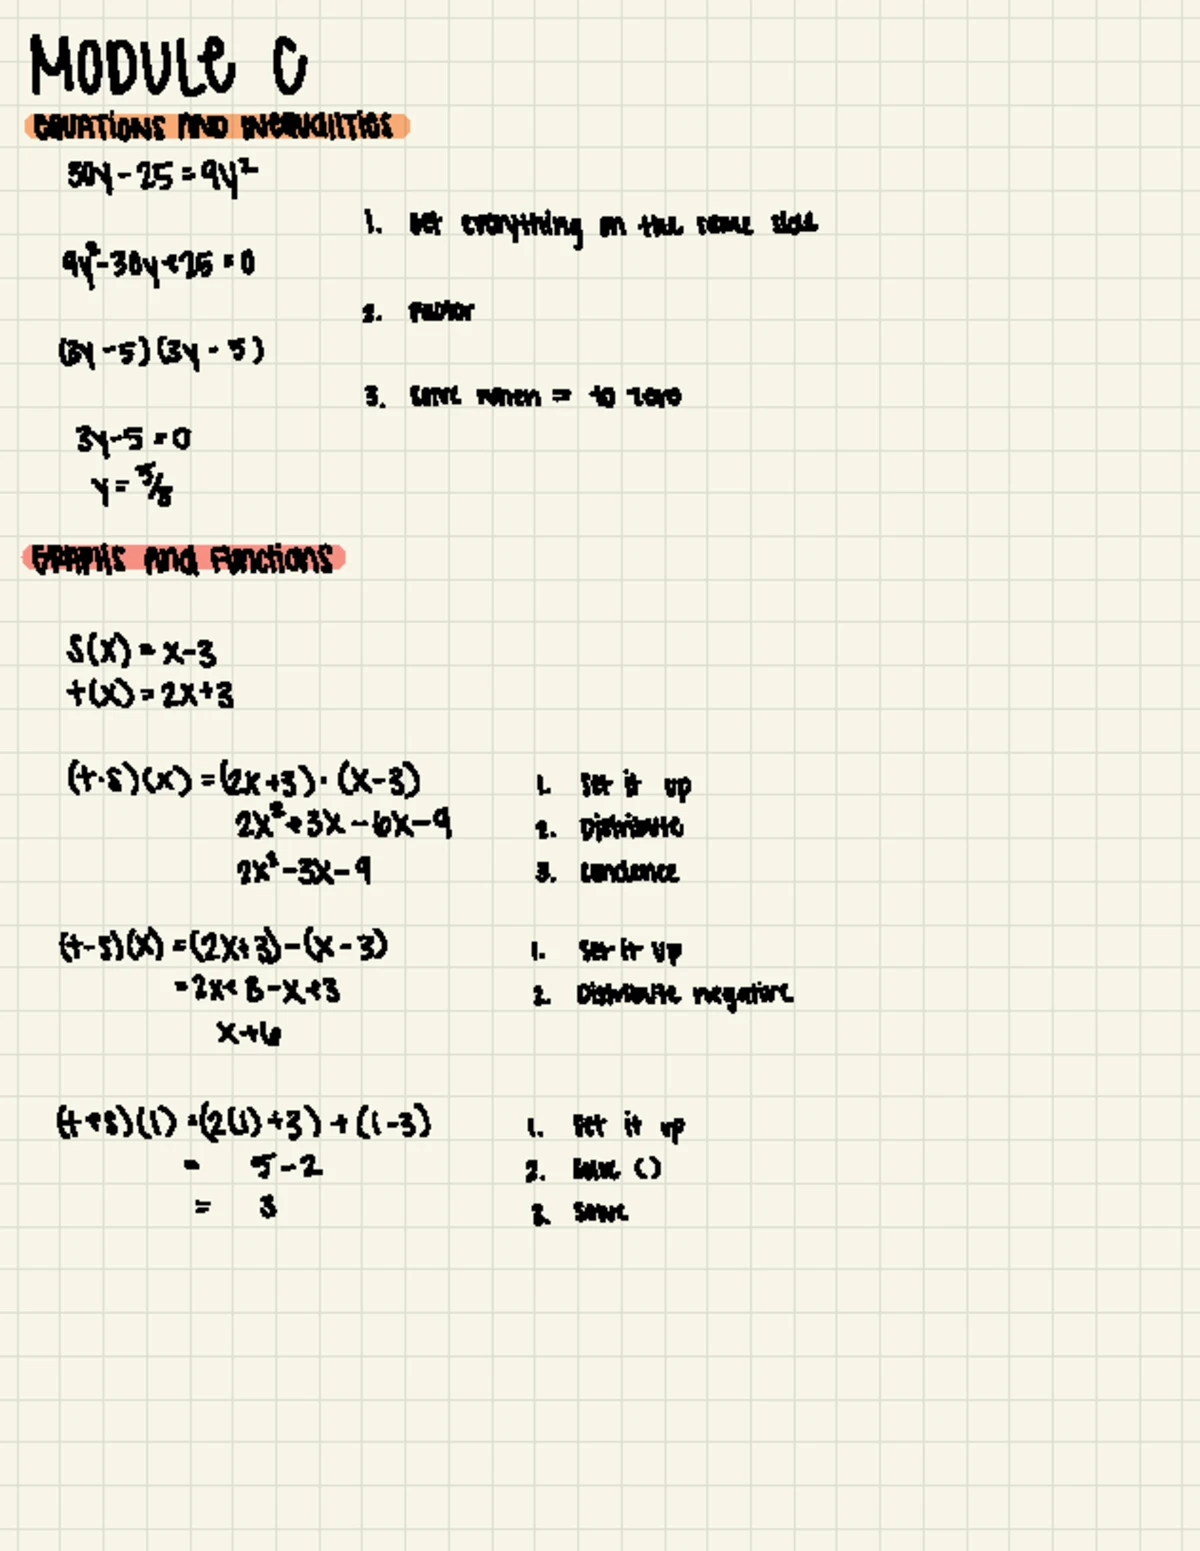 MODULE C
EQUATIONS AND INEQUALITIES
30y - 25 = 9y²
1. Get everything on the same side
9y² - 30y + 25 = 0
2. Factor
(3y - 5)(3y - 5)
3. Solve when = to zero
3y - 5 = 0
y = 5/3
GRAPHS and Functions
S(x) = x - 3
t(x) = 2x + 3
(t·s)(x) = (2x + 3) · (x - 3) 1. Set it up
2x² + 3x - 6x - 9 2. Distribute
2x² - 3x - 9 3. Condence
(t - s)(x) = (2x + 3) - (x - 3) 1. Set it up
= 2x + 3 - x + 3 2. Distribute negative
x + 6
(t + s)(1) = (2(1) + 3) + (1 - 3) 1. Set it up
= 5 - 2 2. Solve ()
= 3 3. Solve